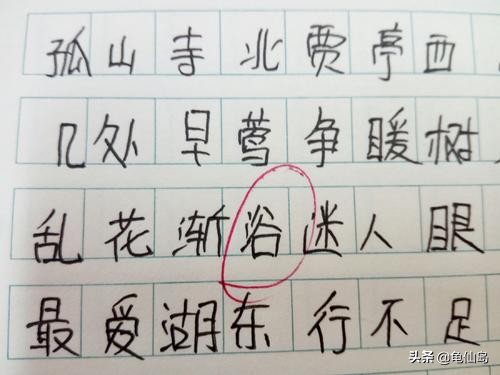 孤山寺北贾亭西
几处早莺争暖树
乱花渐浴迷人眼
最爱湖东行不足
头条 @龟仙岛